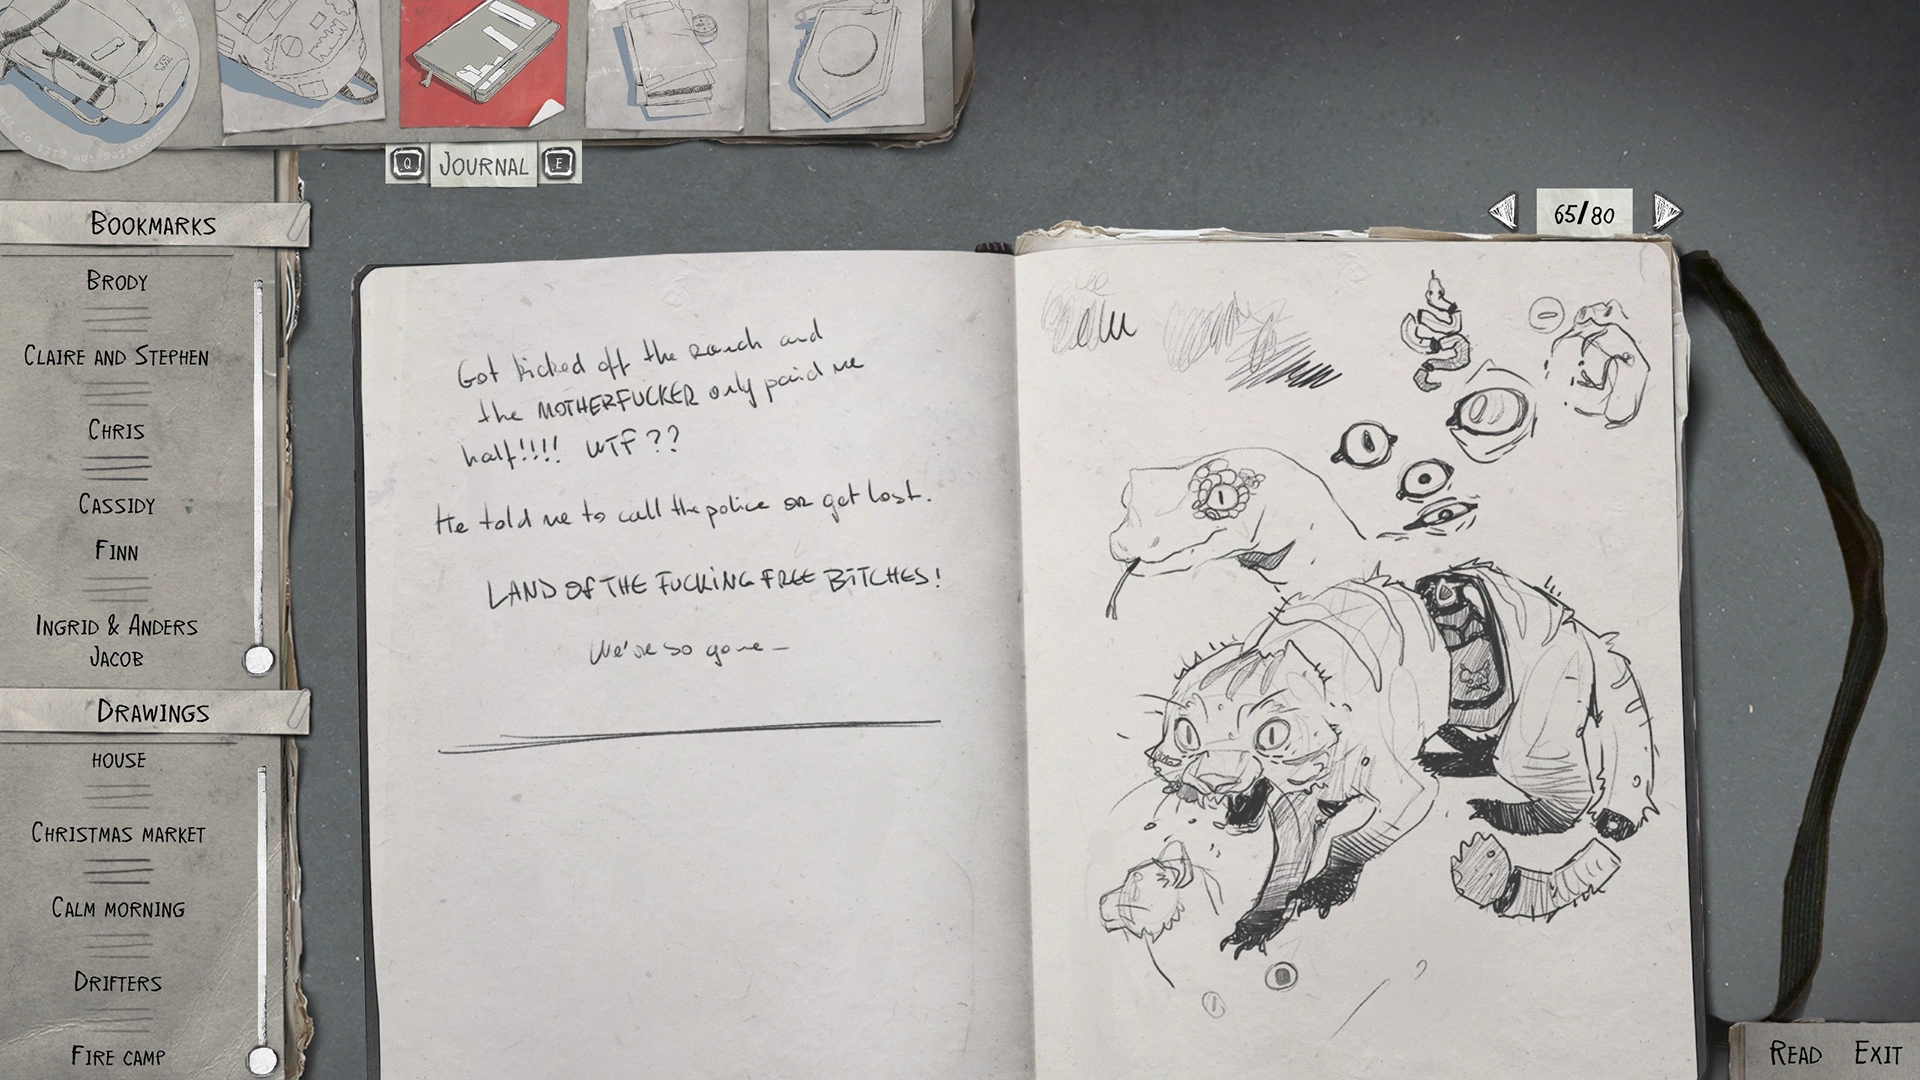 Q JOURNAL E
65/80
BOOKMARKS
BRODY
CLAIRE AND STEPHEN
CHRIS
CASSIDY
FINN
INGRID & ANDERS
JACOB
DRAWINGS
HOUSE
CHRISTMAS MARKET
CALM MORNING
DRIFTERS
FIRE CAMP
Got kicked off the ranch and
the MOTHERFUCKER only paid me
half!!!! WTF??
He told me to call the police or get lost.
LAND OF THE FUCKING FREE BITCHES!
We're so gone -
READ EXIT